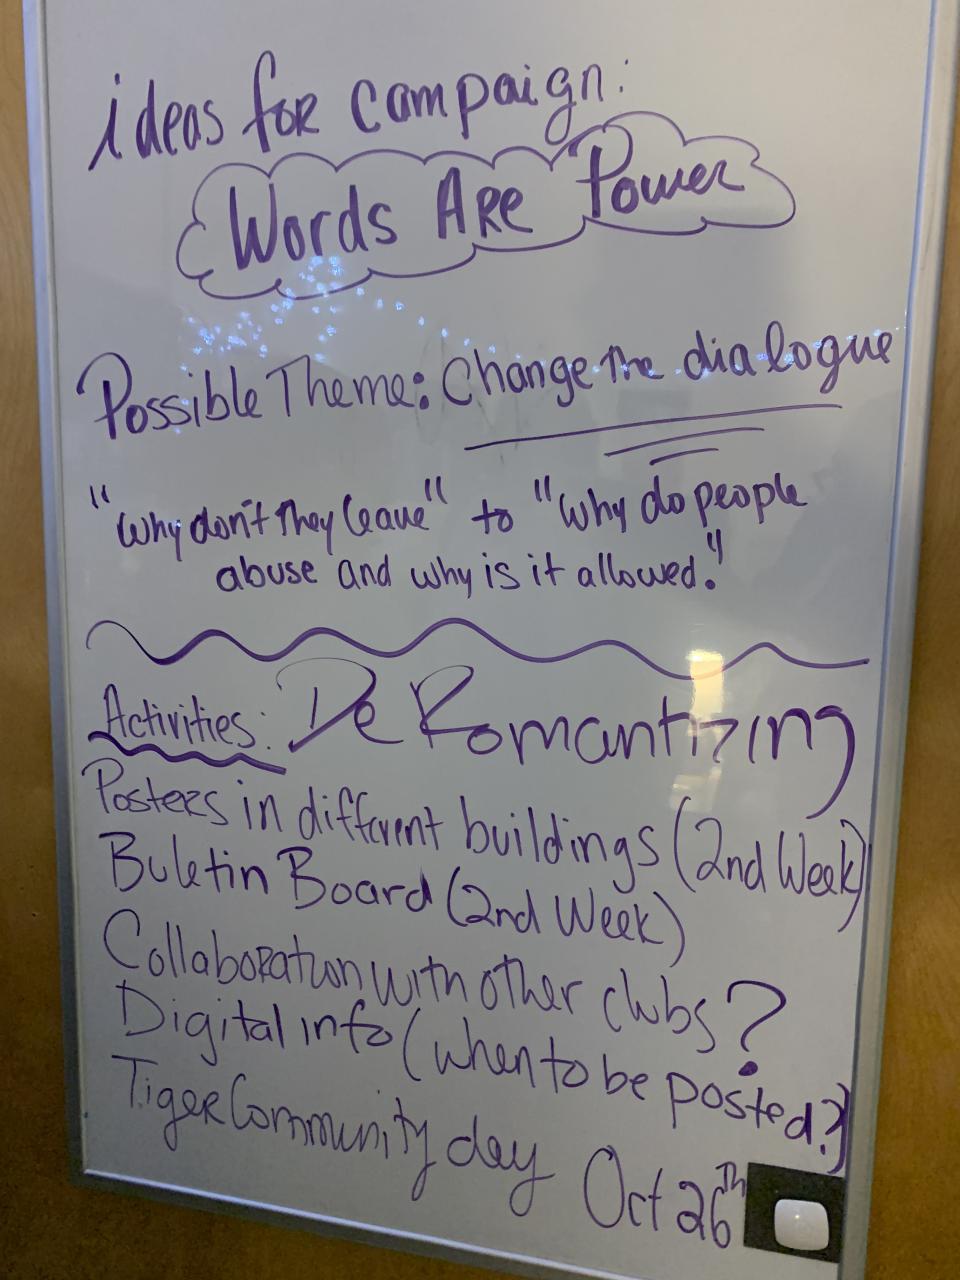 ideas for campaign:
Words Are Power
Possible Theme: Change the dialogue
"Why don't they leave" to "why do people
abuse and why is it allowed."
Activities: De Romantizing
Posters in different buildings (2nd Week)
Buletin Board (2nd Week)
Collaboration with other clubs?
Digital info (when to be posted?)
Tiger Community day Oct 26th